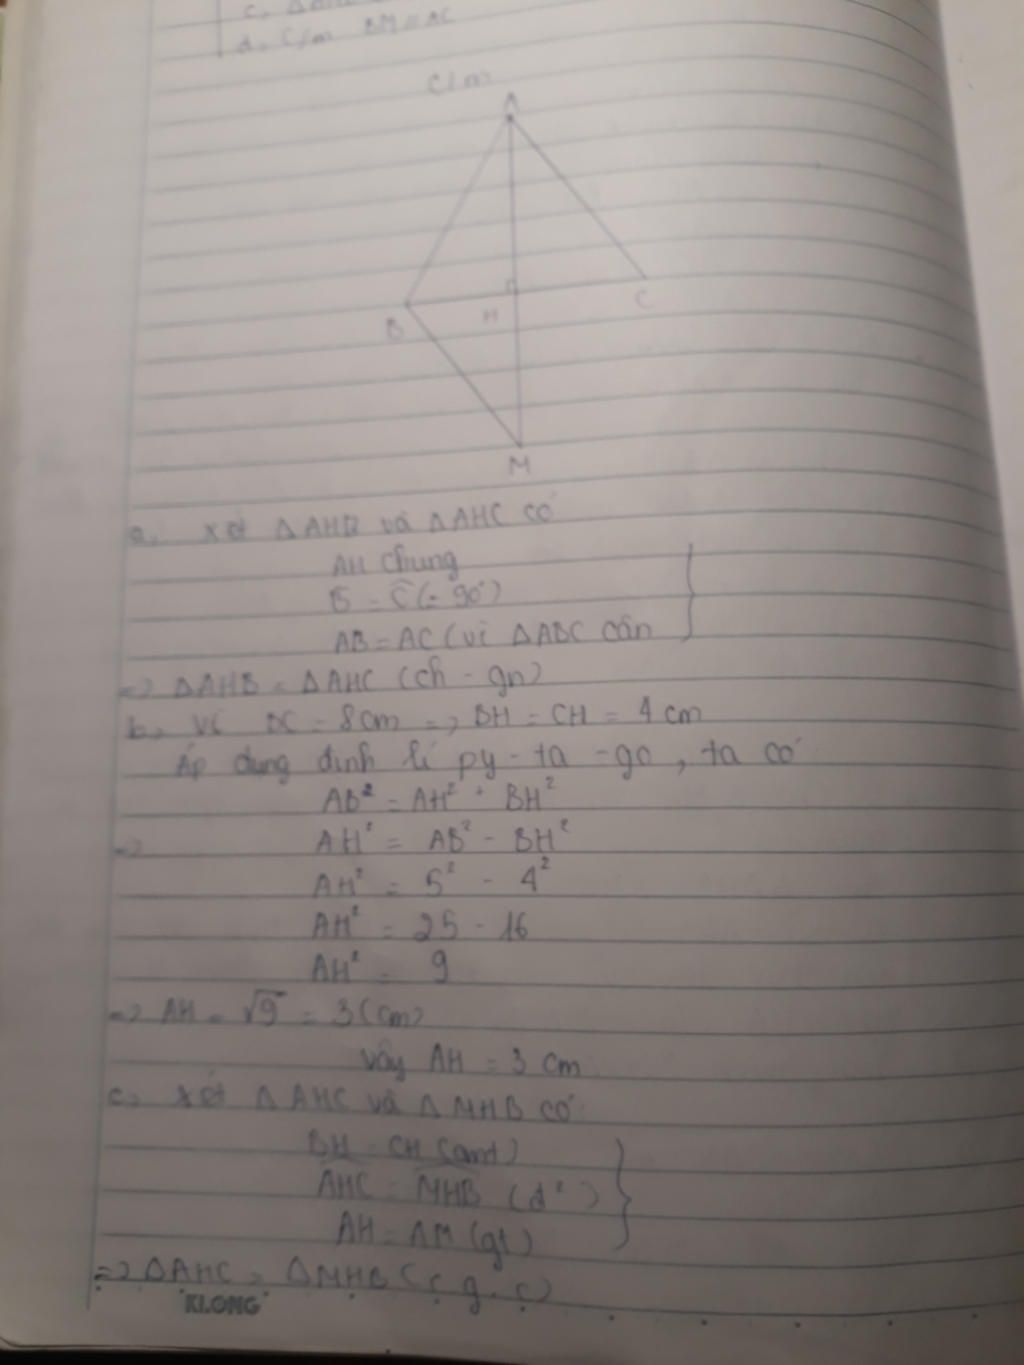 c, Δ
d, C/m BM = AC
C/m
A
B
H
C
M
a, xét Δ AHB và Δ AHC có
AH chung
B̂ = Ĉ (= 90°)
AB = AC (vì Δ ABC cân
=> Δ AHB = Δ AHC (ch - gn)
b, Vì BC = 8 cm => BH = CH = 4 cm
Áp dụng định lí py - ta - go, ta có
AB² = AH² + BH²
=> AH² = AB² - BH²
AH² = 5² - 4²
AH² = 25 - 16
AH² = 9
=> AH = √9 = 3 (cm)
Vậy AH = 3 cm
c, xét Δ AHC và Δ MHB có
BH = CH (cmt)
AHC = MHB (d²)
AH = AM (gt)
=> Δ AHC = Δ MHB (c . g . c)
KLONG